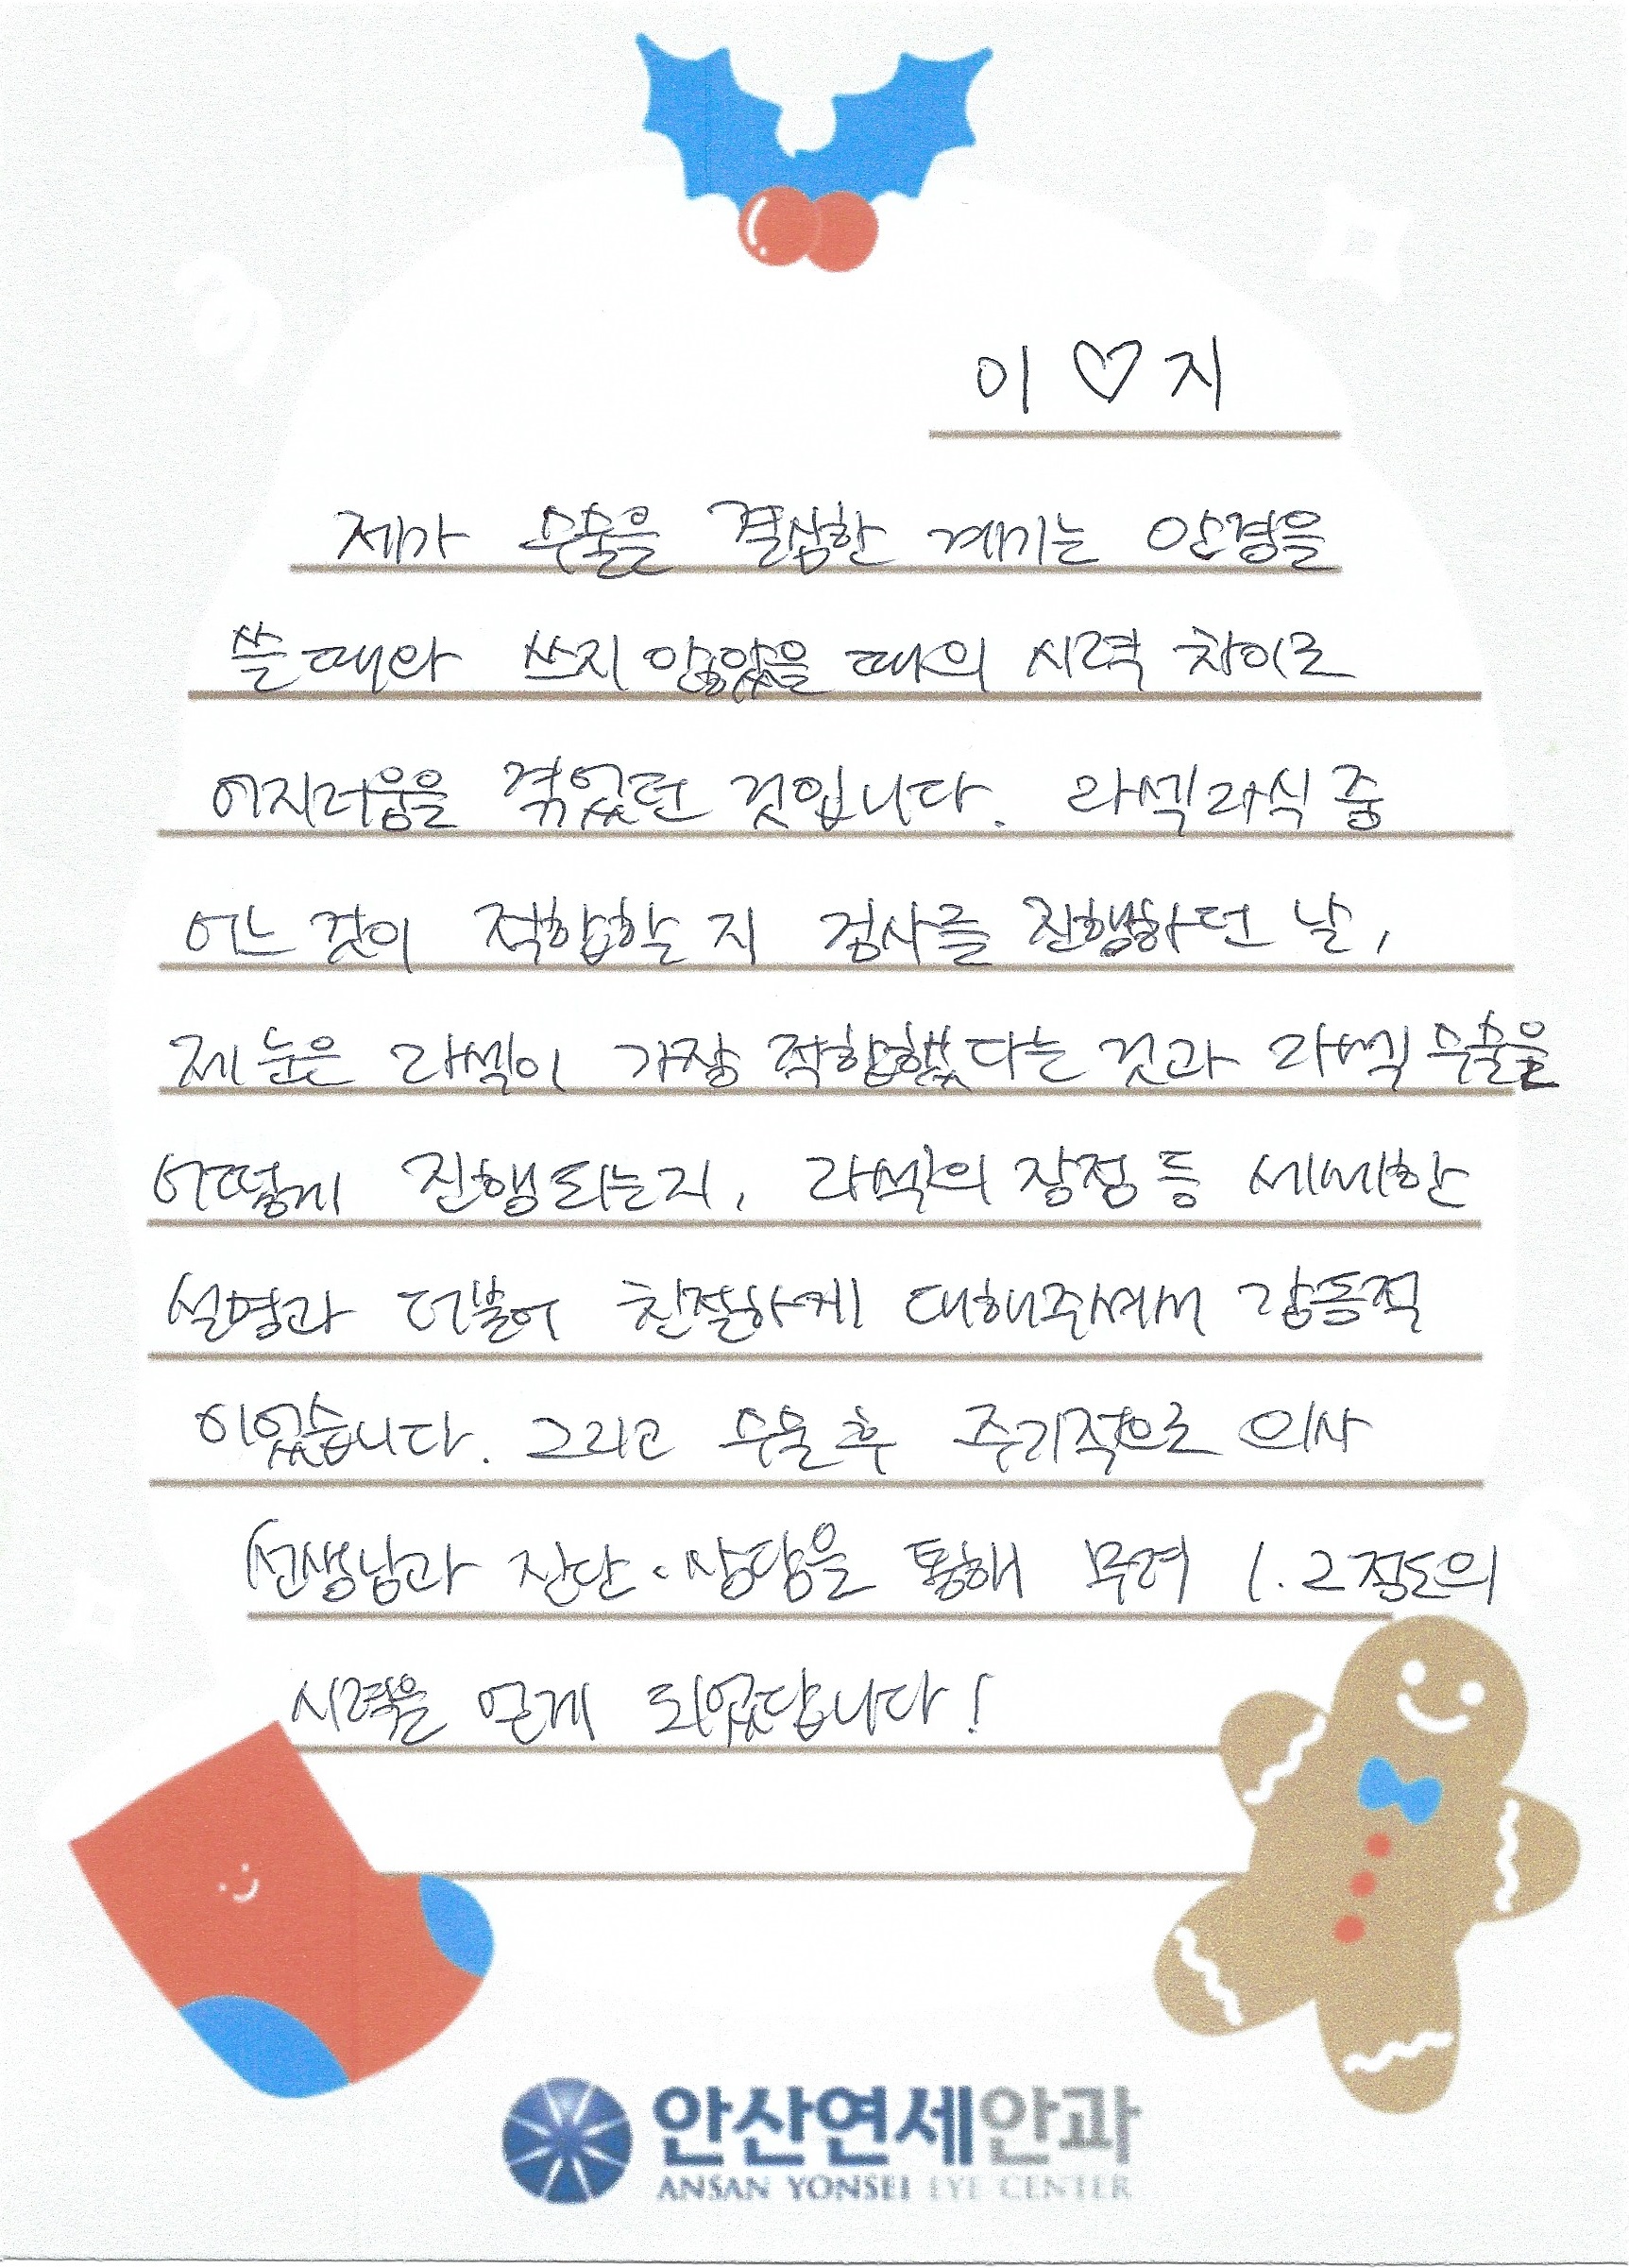 이 ♡ 지
제가 수술을 결심한 계기는 안경을
쓸 때와 쓰지 않았을 때의 시력 차이로
어지러움을 겪었던 것입니다. 라섹 라식 중
어느 것이 적합할 지 검사를 진행하던 날,
제 눈은 라섹이 가장 적합했다는 것과 라섹 수술을
어떻게 진행되는지, 라섹의 장점 등 세세한
설명과 더불어 친절하게 대해주셔서 감동적
이었습니다. 그리고 수술 후 주기적으로 의사
선생님과 진단·상담을 통해 무려 1.2정도의
시력을 얻게 되었답니다!
안산연세안과
ANSAN YONSEI EYE CENTER